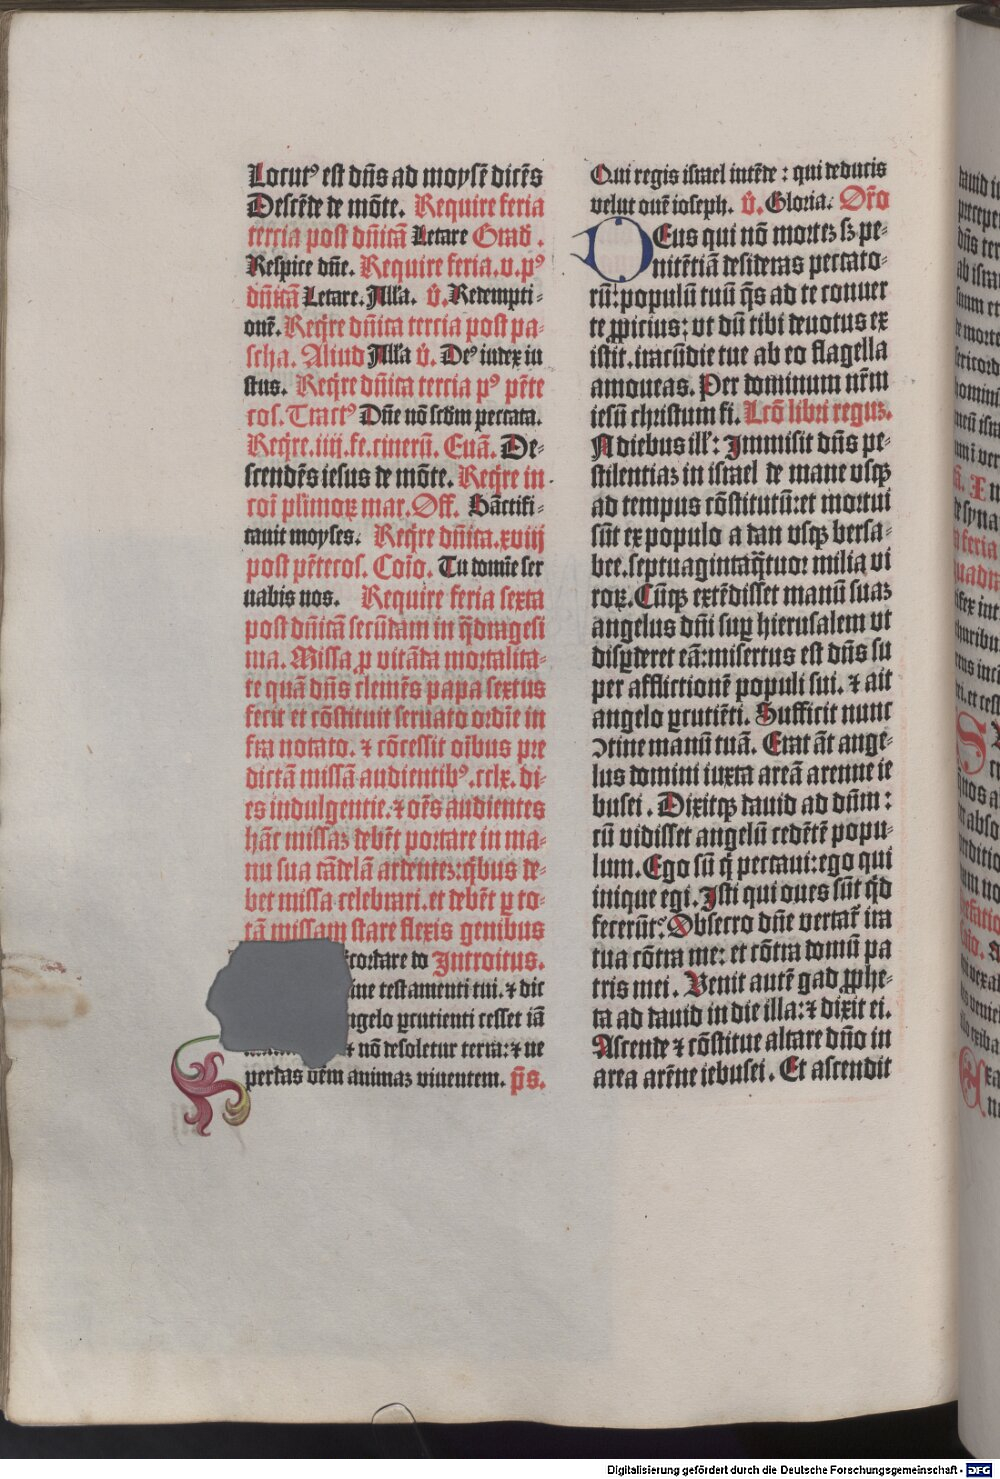 Locutꝰ est dñs ad moysē dicēs
Descēde de mōte. Require feria
tercia post dñicā Letare Grad̄.
Respice dñe. Require feria.v.pꝰ
dñicā Letare. Alľa. ꝟ. Redempti-
onē. Reqͥre dñica tercia post pa-
scha. Aliud Alľa ꝟ. Deꝰ iudex iu
stus. Reqͥre dñica tercia pꝰ pēte
cos. Tractꝰ Dñe nō scđm peccata.
Reqͥre.iiij.fe.cinerū. Euā. De-
scendēs iesus de mōte. Reqͥre in
coī plͥimoꝝ mar. Off. Sāctifi-
cauit moyses. Reqͥre dñica.xviij
post pētecos. Coīo. Tu domīe ser
uabis nos. Require feria sexta
post dñicā secūdam in qͣdragesi
ma. Missa ꝓ vitāda mortalita-
te quā dñs clemēs papa sextus
fecit et cōstituit seruato ordīe in
fra notato. ⁊ cōcessit oībus pre
dictā missā audientibꝰ.cclx. di-
es indulgentie.⁊ oēs audientes
hāc missaꝫ debēt portare in ma-
nu sua cādelā ardenteꝫ:qͥbus de-
bet missa celebrari.et debēt ꝑ to-
tā missam stare flexis genibus
cordare do Introitus.
ine testamenti tui.⁊ dic
ngelo ꝑcutienti cesset iā
⁊ nō desoletur terra:⁊ ne
perdas oēm animaꝫ viuentem. p̄s.
Qui regis israel intēde : qui deducis
velut ouē ioseph. ꝟ. Gloria. Or̄o
DEus qui nō morteꝫ sꝫ pe-
nitētiā desideras peccato-
rū:populū tuū q̄s ad te conuer
te ꝓpicius: vt dū tibi deuotus ex
istit.iracūdie tue ab eo flagella
amoueas. Per dominum nr̄m
iesū christum fi. Lcō libri reguꝫ.
N diebus ill': Immisit dñs pe-
stilentiaꝫ in israel de mane vsqꝫ
ad tempus cōstitutū:et mortui
sūt ex populo a dan vsqꝫ bersa-
bee.septuagintaqͣtuor milia vi
roꝝ. Cūqꝫ extēdisset manū suaꝫ
angelus dñi sup̱ hierusalem vt
disꝑderet eā:misertus est dñs su
per afflictionē populi sui. ⁊ ait
angelo ꝑcutiēti. Sufficit nunc
ↄtine manū tuā. Erat āt ange-
lus domini iuxta areā areune ie
busei. Dixitqꝫ dauid ad dñm :
cū vidisset angelū cedētē popu-
lum. Ego sū qͥ peccaui:ego qui
inique egi. Isti qui oues sūt qͥd
fecerūt? Obsecro dñe vertať ira
tua cōtra me: et cōtra domū pa
tris mei. Venit autē gad ꝓphe-
ta ad dauid in die illa:⁊ dixit ei.
Ascende ⁊ cōstitue altare dño in
area arēne iebusei. Et ascendit
Digitalisierung gefördert durch die Deutsche Forschungsgemeinschaft - DFG